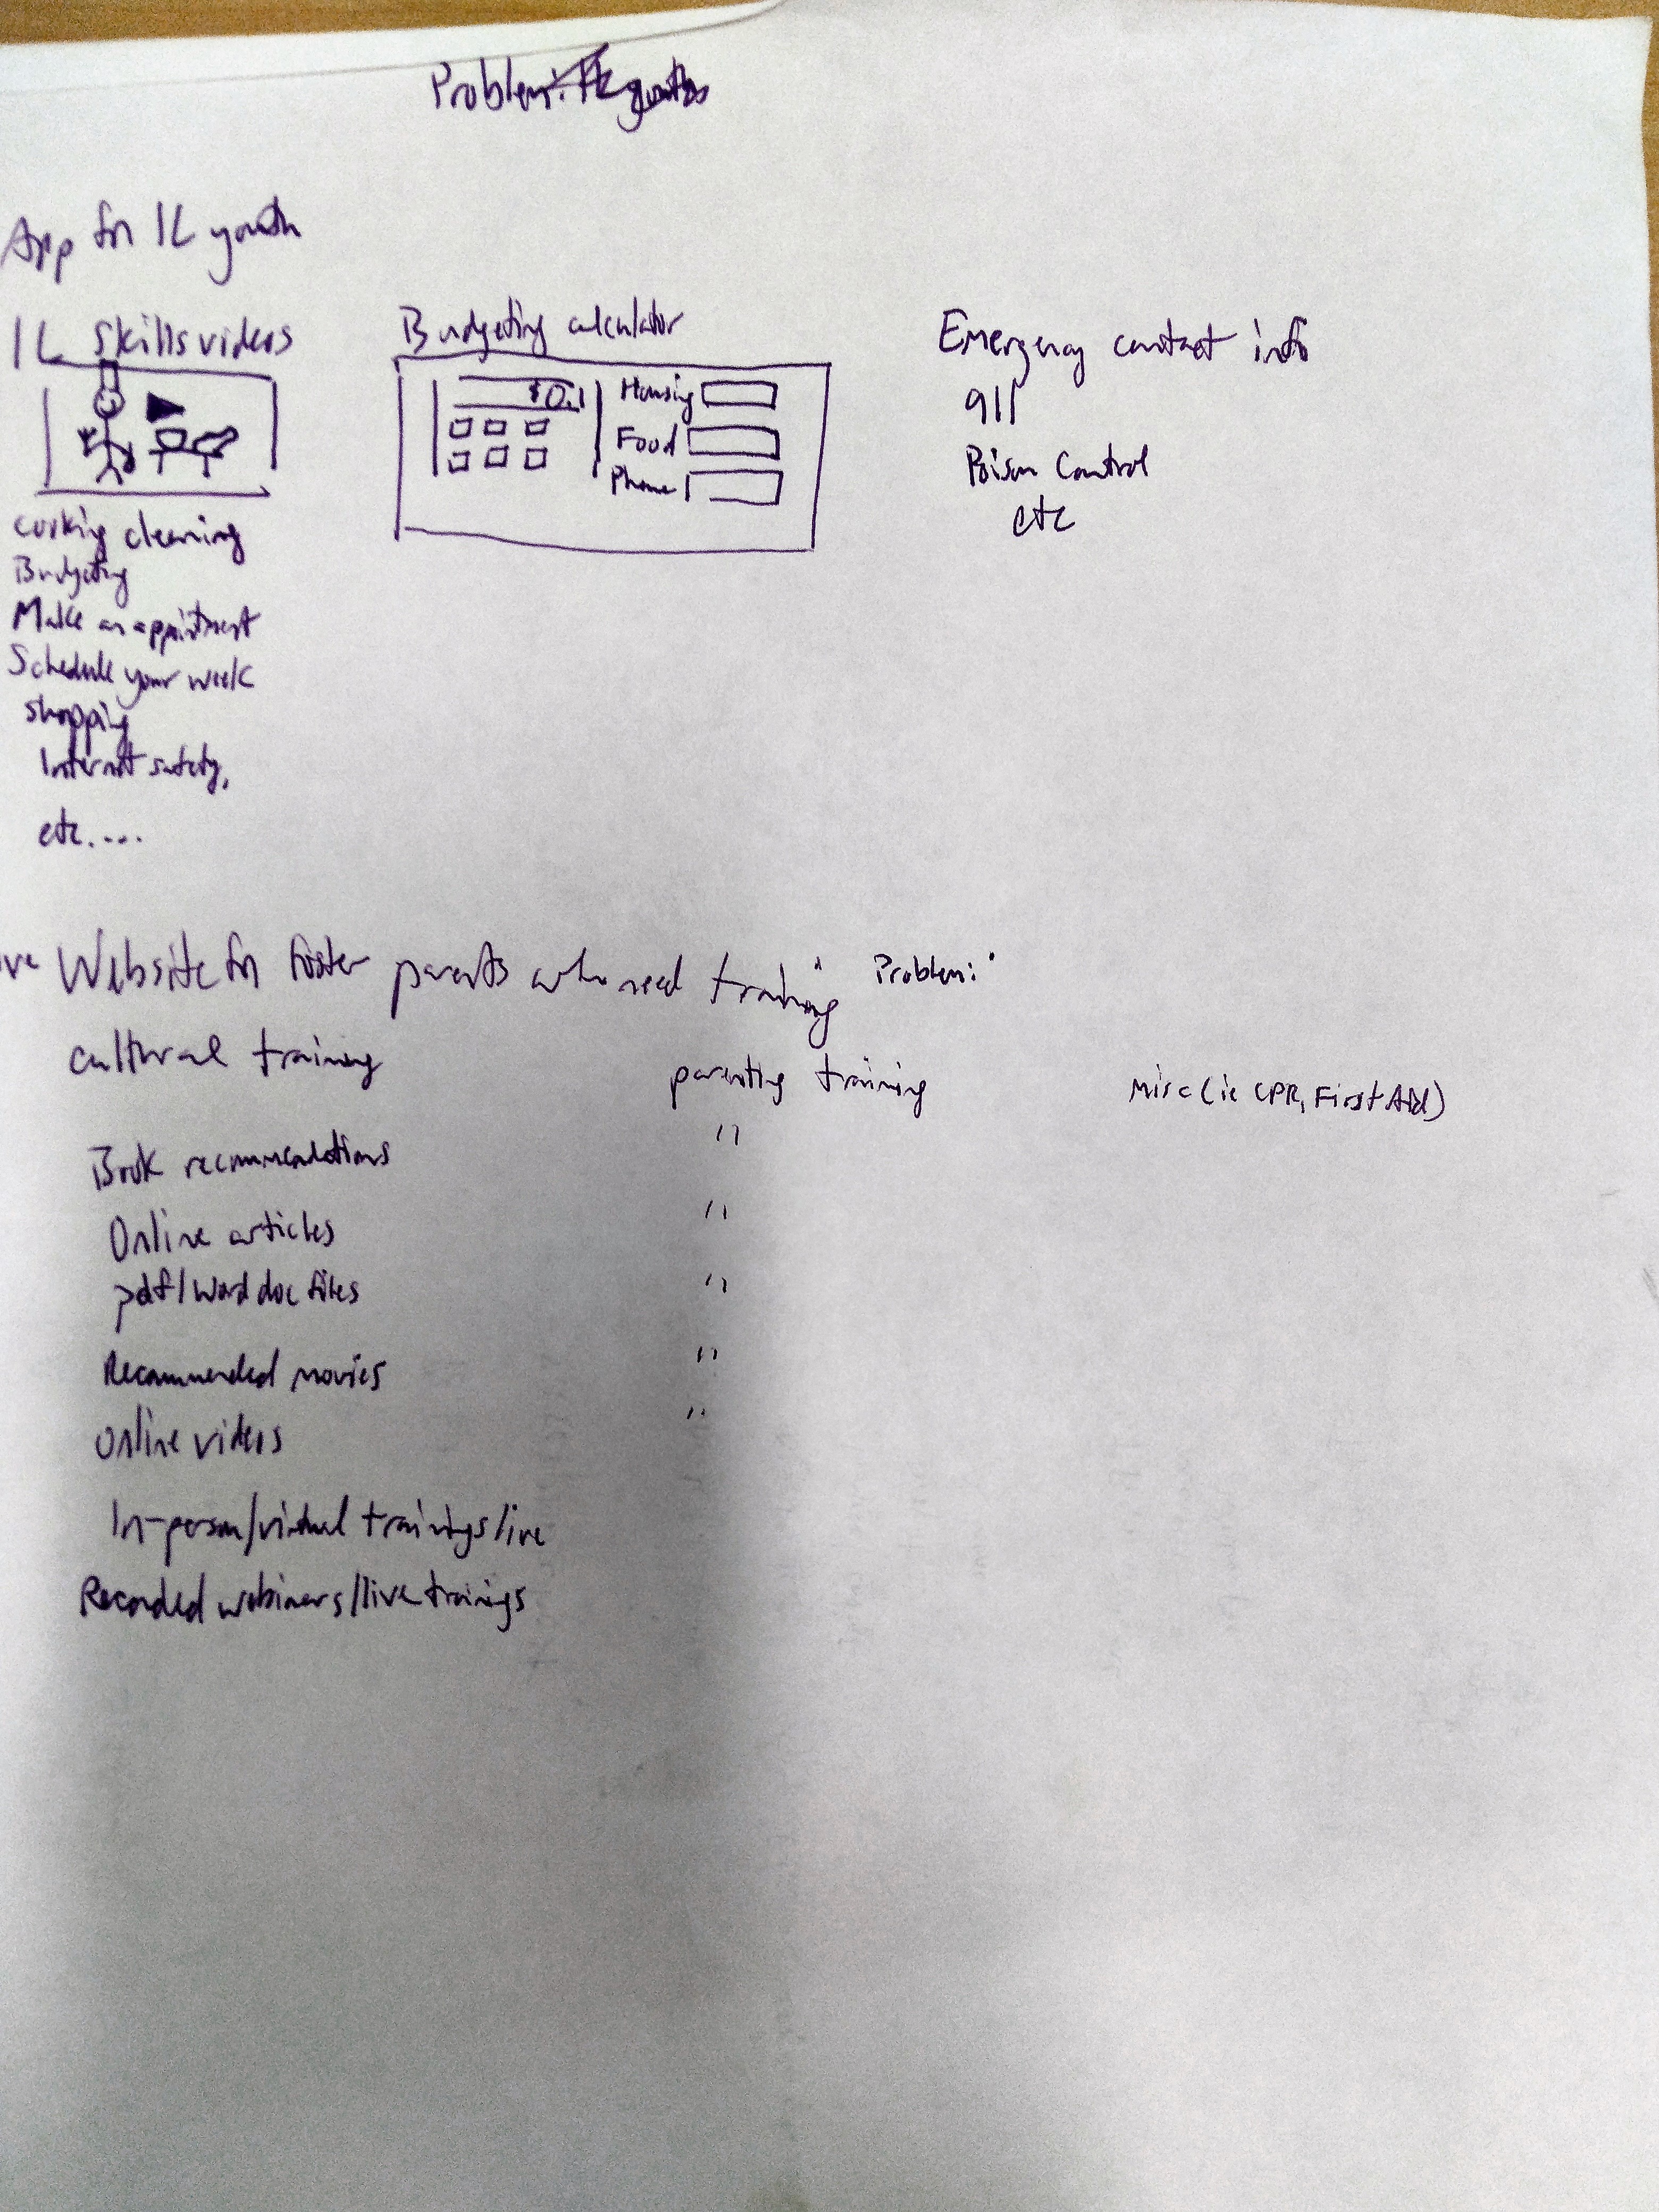 Problem:
App for IL youth
IL skills videos
cooking cleaning
Budgeting
Make an appointment
Schedule your week
shopping
Internet safety,
etc....
Budgeting calculator
Housing
Food
Phone
Emergency contact info
911
Poison Control
etc
Website for foster parents who need training Problem:
cultural training
Book recommendations
Online articles
pdf/Word doc files
Recommended movies
Online videos
In-person/virtual trainings/live
Recorded webinars/live trainings
parenting training
"
"
"
"
"
Misc (ie CPR, First Aid)